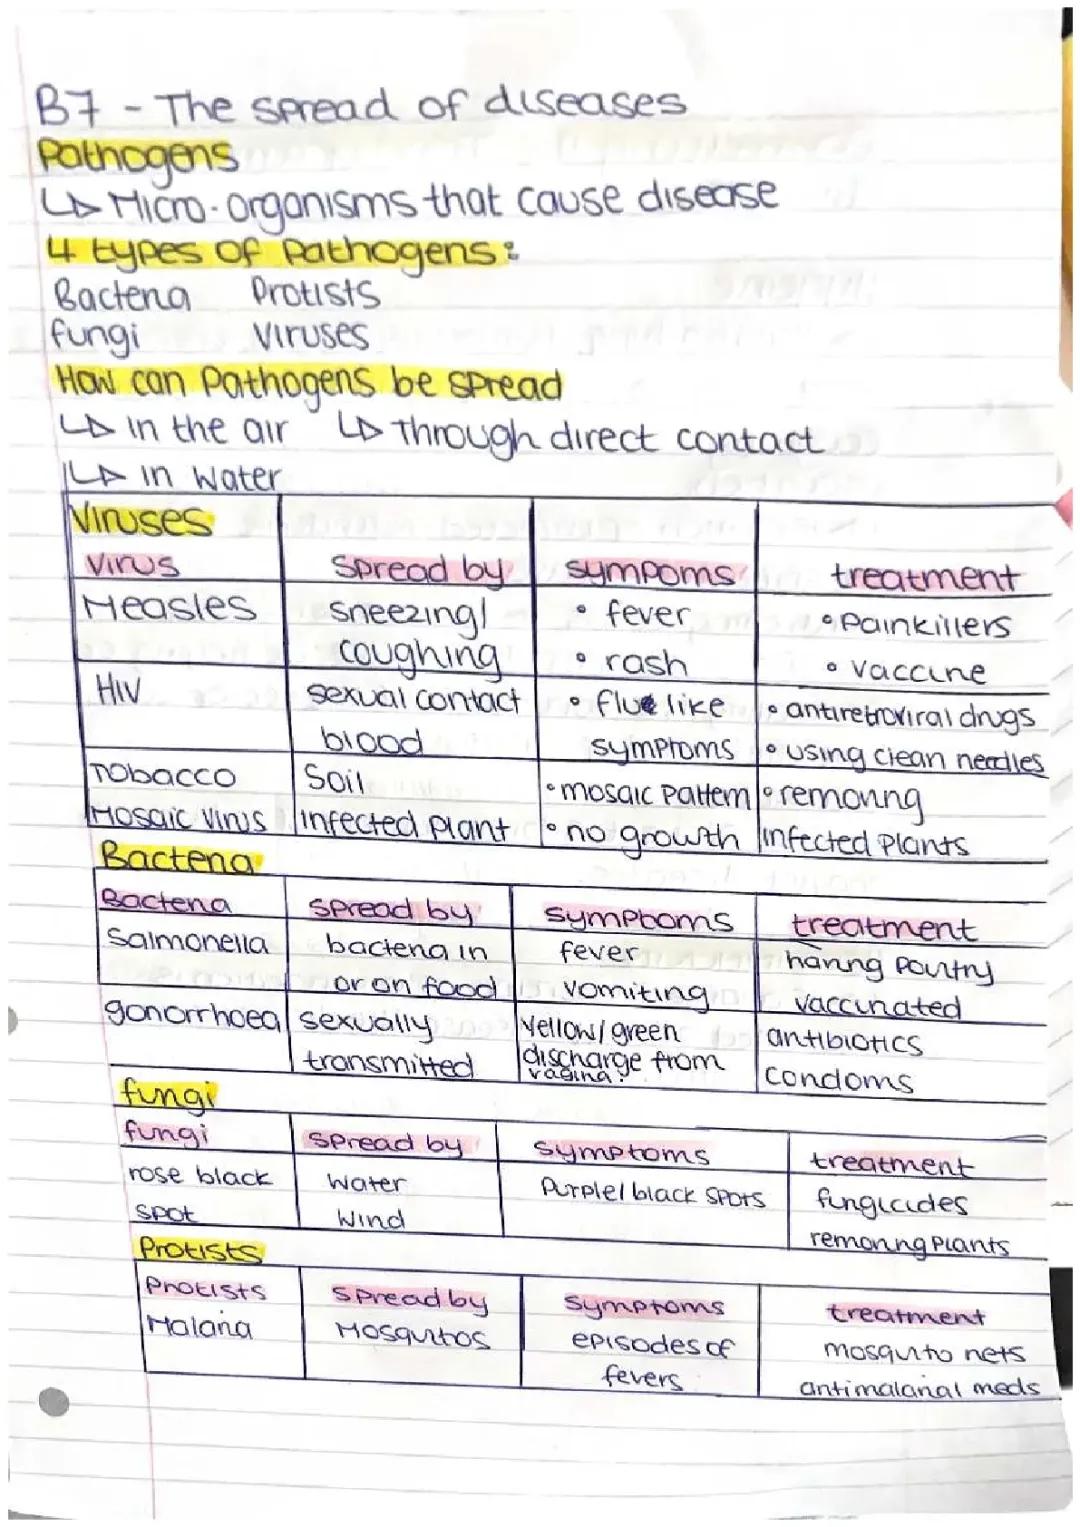 B7 - The spread of diseases
Pathogens
↳ Micro-organisms that cause disease
4 types of Pathogens:
Bacteria Protists
fungi Viruses
How can Pathogens be spread
↳ in the air ↳ Through direct contact
↳ in water
Viruses
Virus Spread by sympoms treatment
Measles sneezing/ • fever • Painkillers
coughing • rash • vaccine
HIV sexual contact • flue like • antiretroviral drugs
blood symptoms • using clean needles
Tobacco Soil • mosaic pattern • removing
Mosaic Virus infected plant • no growth infected plants
Bacteria
Bacteria spread by symptoms treatment
Salmonella bacteria in fever having poultry
or on food vomiting vaccinated
gonorrhoea sexually Yellow/green antibiotics
transmitted discharge from condoms
vagina.
fungi
fungi spread by symptoms treatment
rose black water Purple/black spots fungicides
spot wind removing plants
Protists
Protists spread by symptoms treatment
Malaria Mosquitos episodes of mosquito nets
fevers antimalarial meds